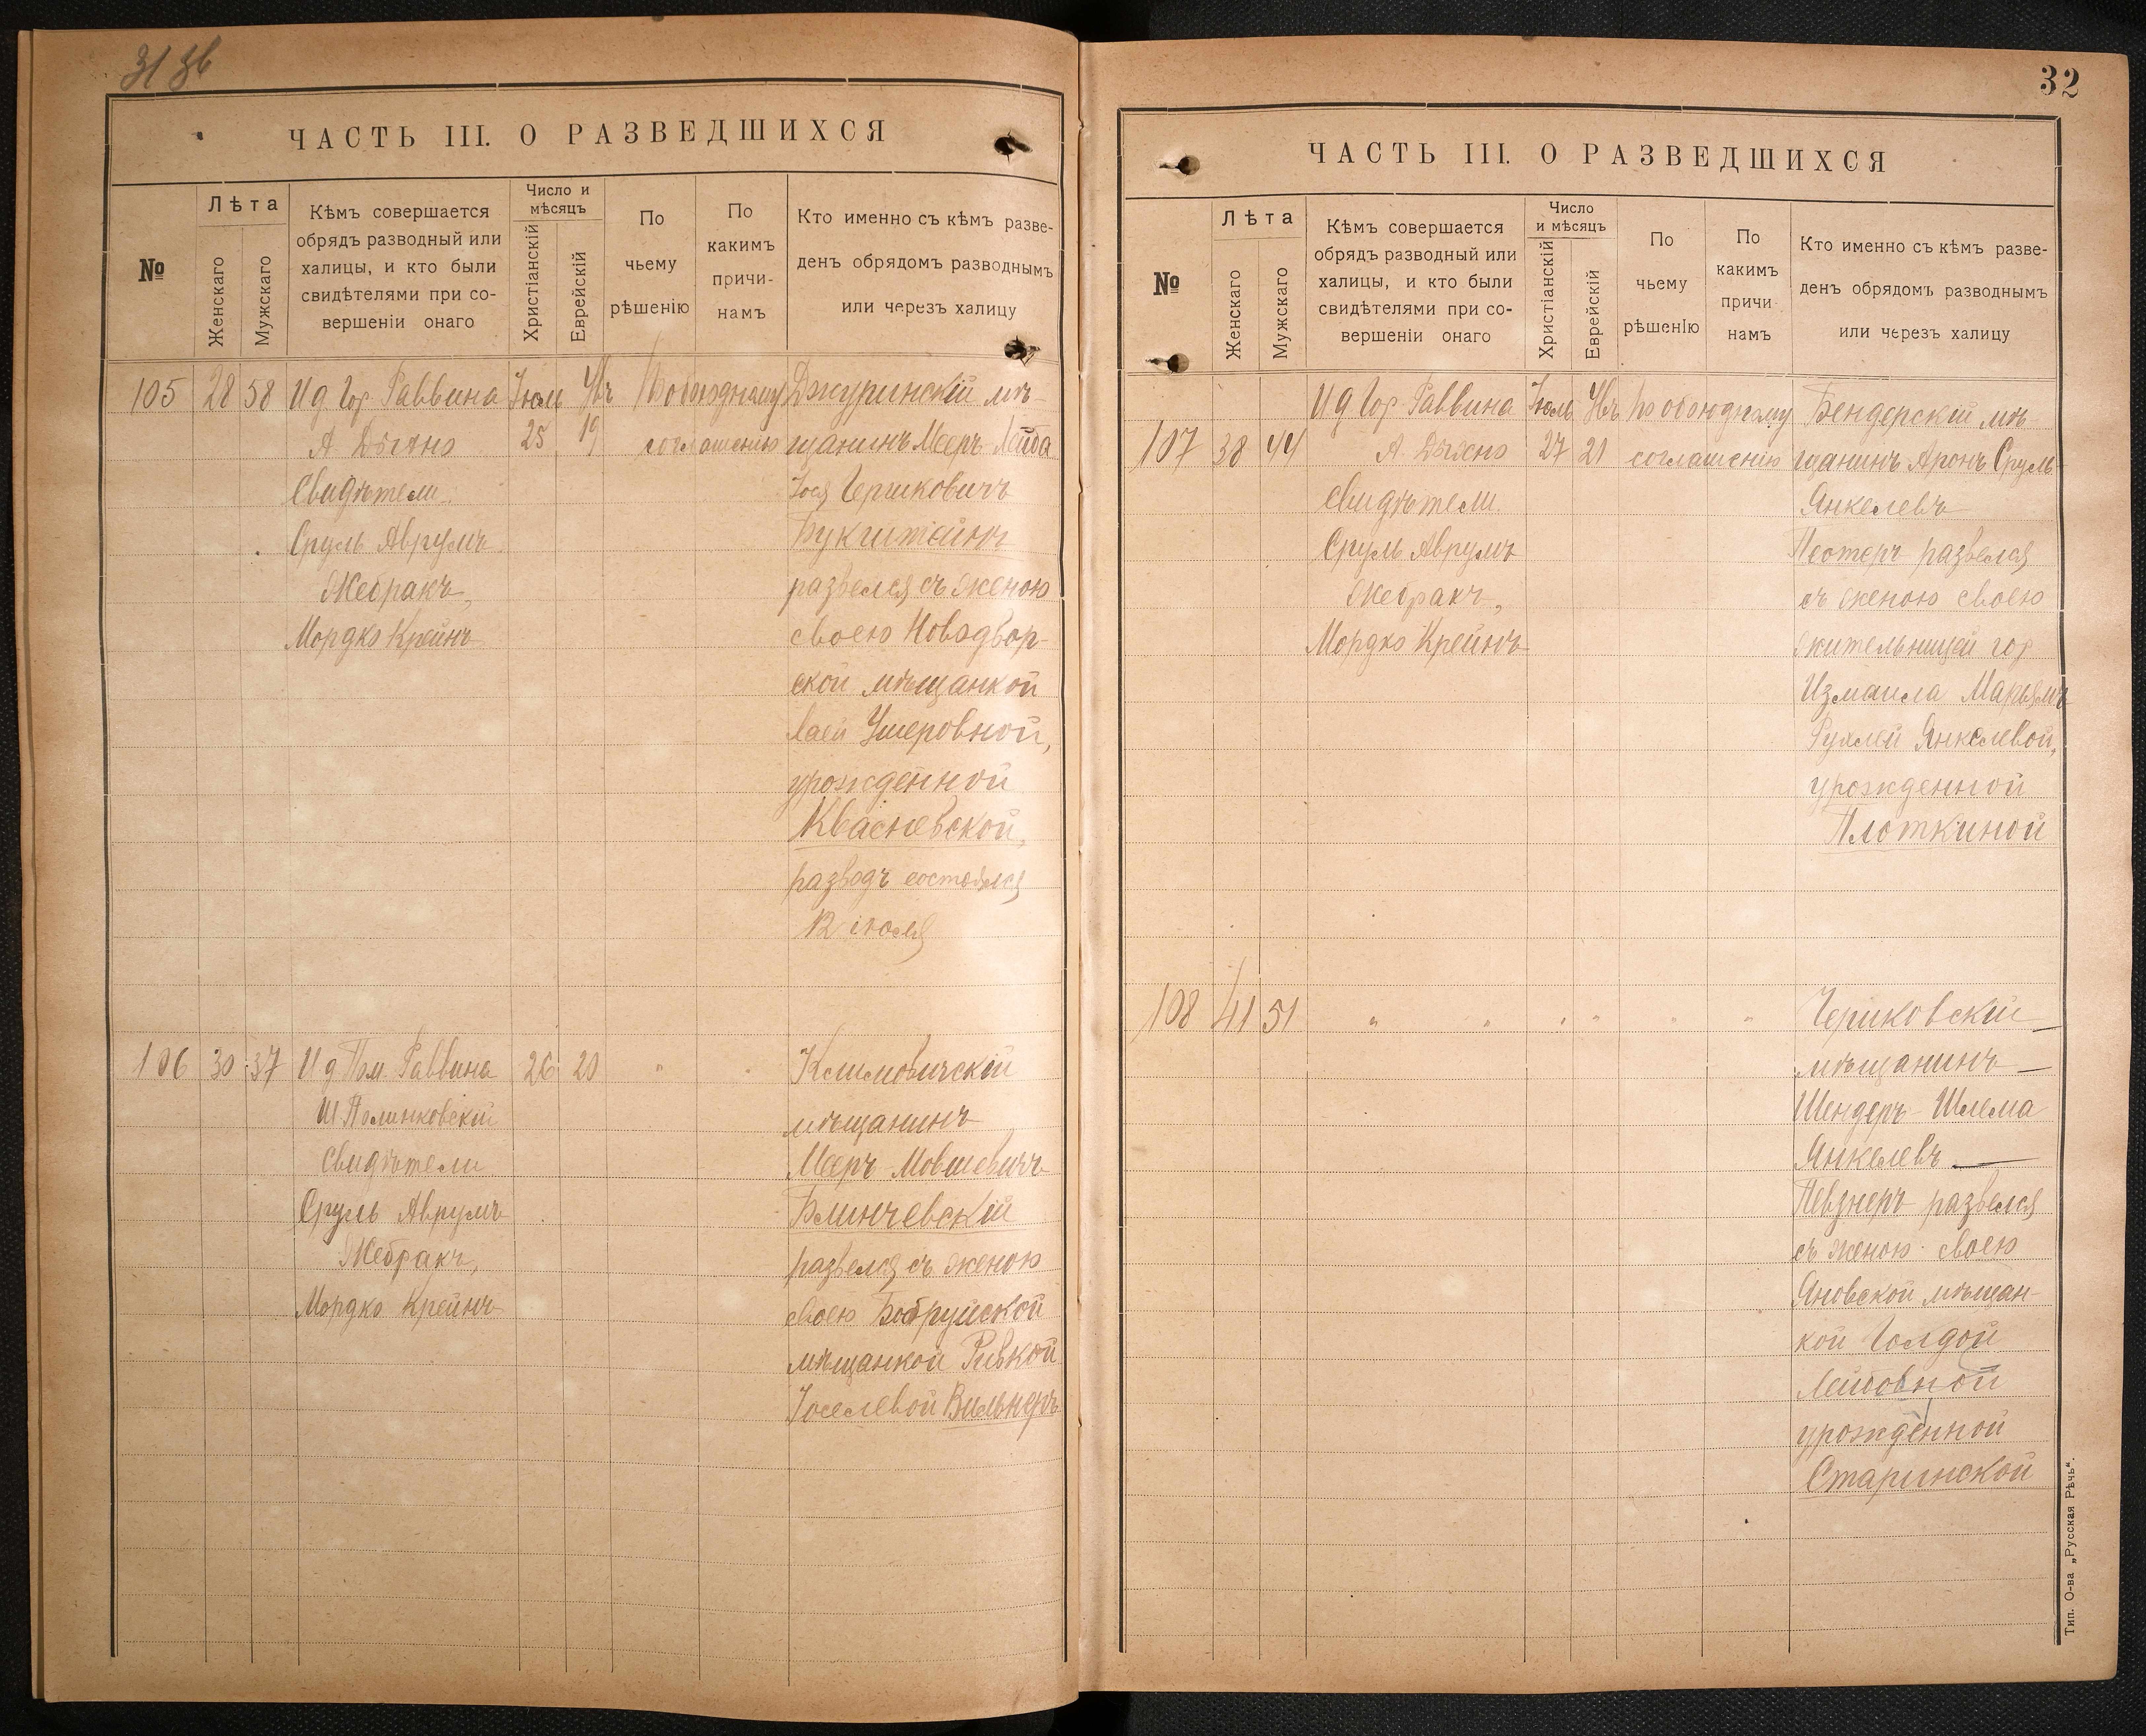 31 зв
ЧАСТЬ III. О РАЗВЕДШИХСЯ
№
Лѣта
Женскаго
Мужскаго
Кѣмъ совершается
обрядъ разводный или
халицы, и кто были
свидѣтелями при со-
вершеніи онаго
Число и
мѣсяцъ
Христіанскій
Еврейскій
По
чьему
рѣшенію
По
какимъ
причи-
намъ
Кто именно съ кѣмъ разве-
денъ обрядомъ разводнымъ
или через халицу
105 28 58 И д Гор Раввина Іюль Увъ По обоюдному Джуринскій мѣ-
А 25 19 соглашенію щанинъ Мееръ-Лейба
Свидѣтели Гершковичъ
Сруль Аврумъ Букштейнъ
Жебракъ, развелся съ женою
Мордко Крейнъ своею Новодвор-
ской мѣщанкой
Хаей Ушеровной,
урожденной
Квасневской,
разводъ состоялся
12 іюля
106 30 37 И д Пом. Раввина 26 20 " " Климовичскій
Ш Полинковскій мѣщанинъ
Свидѣтели Мееръ Мовшевичъ
Сруль Аврумъ Блинчевскій
Жебракъ, развелся съ женою
Мордко Крейнъ своею Бобруйской
мѣщанкой Ривкой
Іоселевой Вильнеръ
32
ЧАСТЬ III. О РАЗВЕДШИХСЯ
№
Лѣта
Женскаго
Мужскаго
Кѣмъ совершается
обрядъ разводный или
халицы, и кто были
свидѣтелями при со-
вершеніи онаго
Число
и мѣсяцъ
Христіанскій
Еврейскій
По
чьему
рѣшенію
По
какимъ
причи-
намъ
Кто именно съ кѣмъ разве-
денъ обрядомъ разводнымъ
или черезъ халицу
И д Гор Раввина Іюль Увъ По обоюдному Бендерскій мѣ-
107 38 44 А. 27 21 соглашенію щанинъ Аронъ Сруль
Свидѣтели Янкелевъ
Сруль Аврумъ развелся
Жебракъ, съ женою своею
Мордко Крейнъ жительницей гор
Измаила Марьямъ
Рухлей Янкелевой,
урожденной
Плоткиной
108 41 51 " " " " " " Чериковскій
мѣщанинъ
Шендеръ-Шлема
Янкелевъ
Певзнеръ развелся
съ женою своею
Яновской мѣщан-
кой Голдой
Лейбовной
урожденной
Старинской
Тип. О-ва „Русская Рѣчь“.